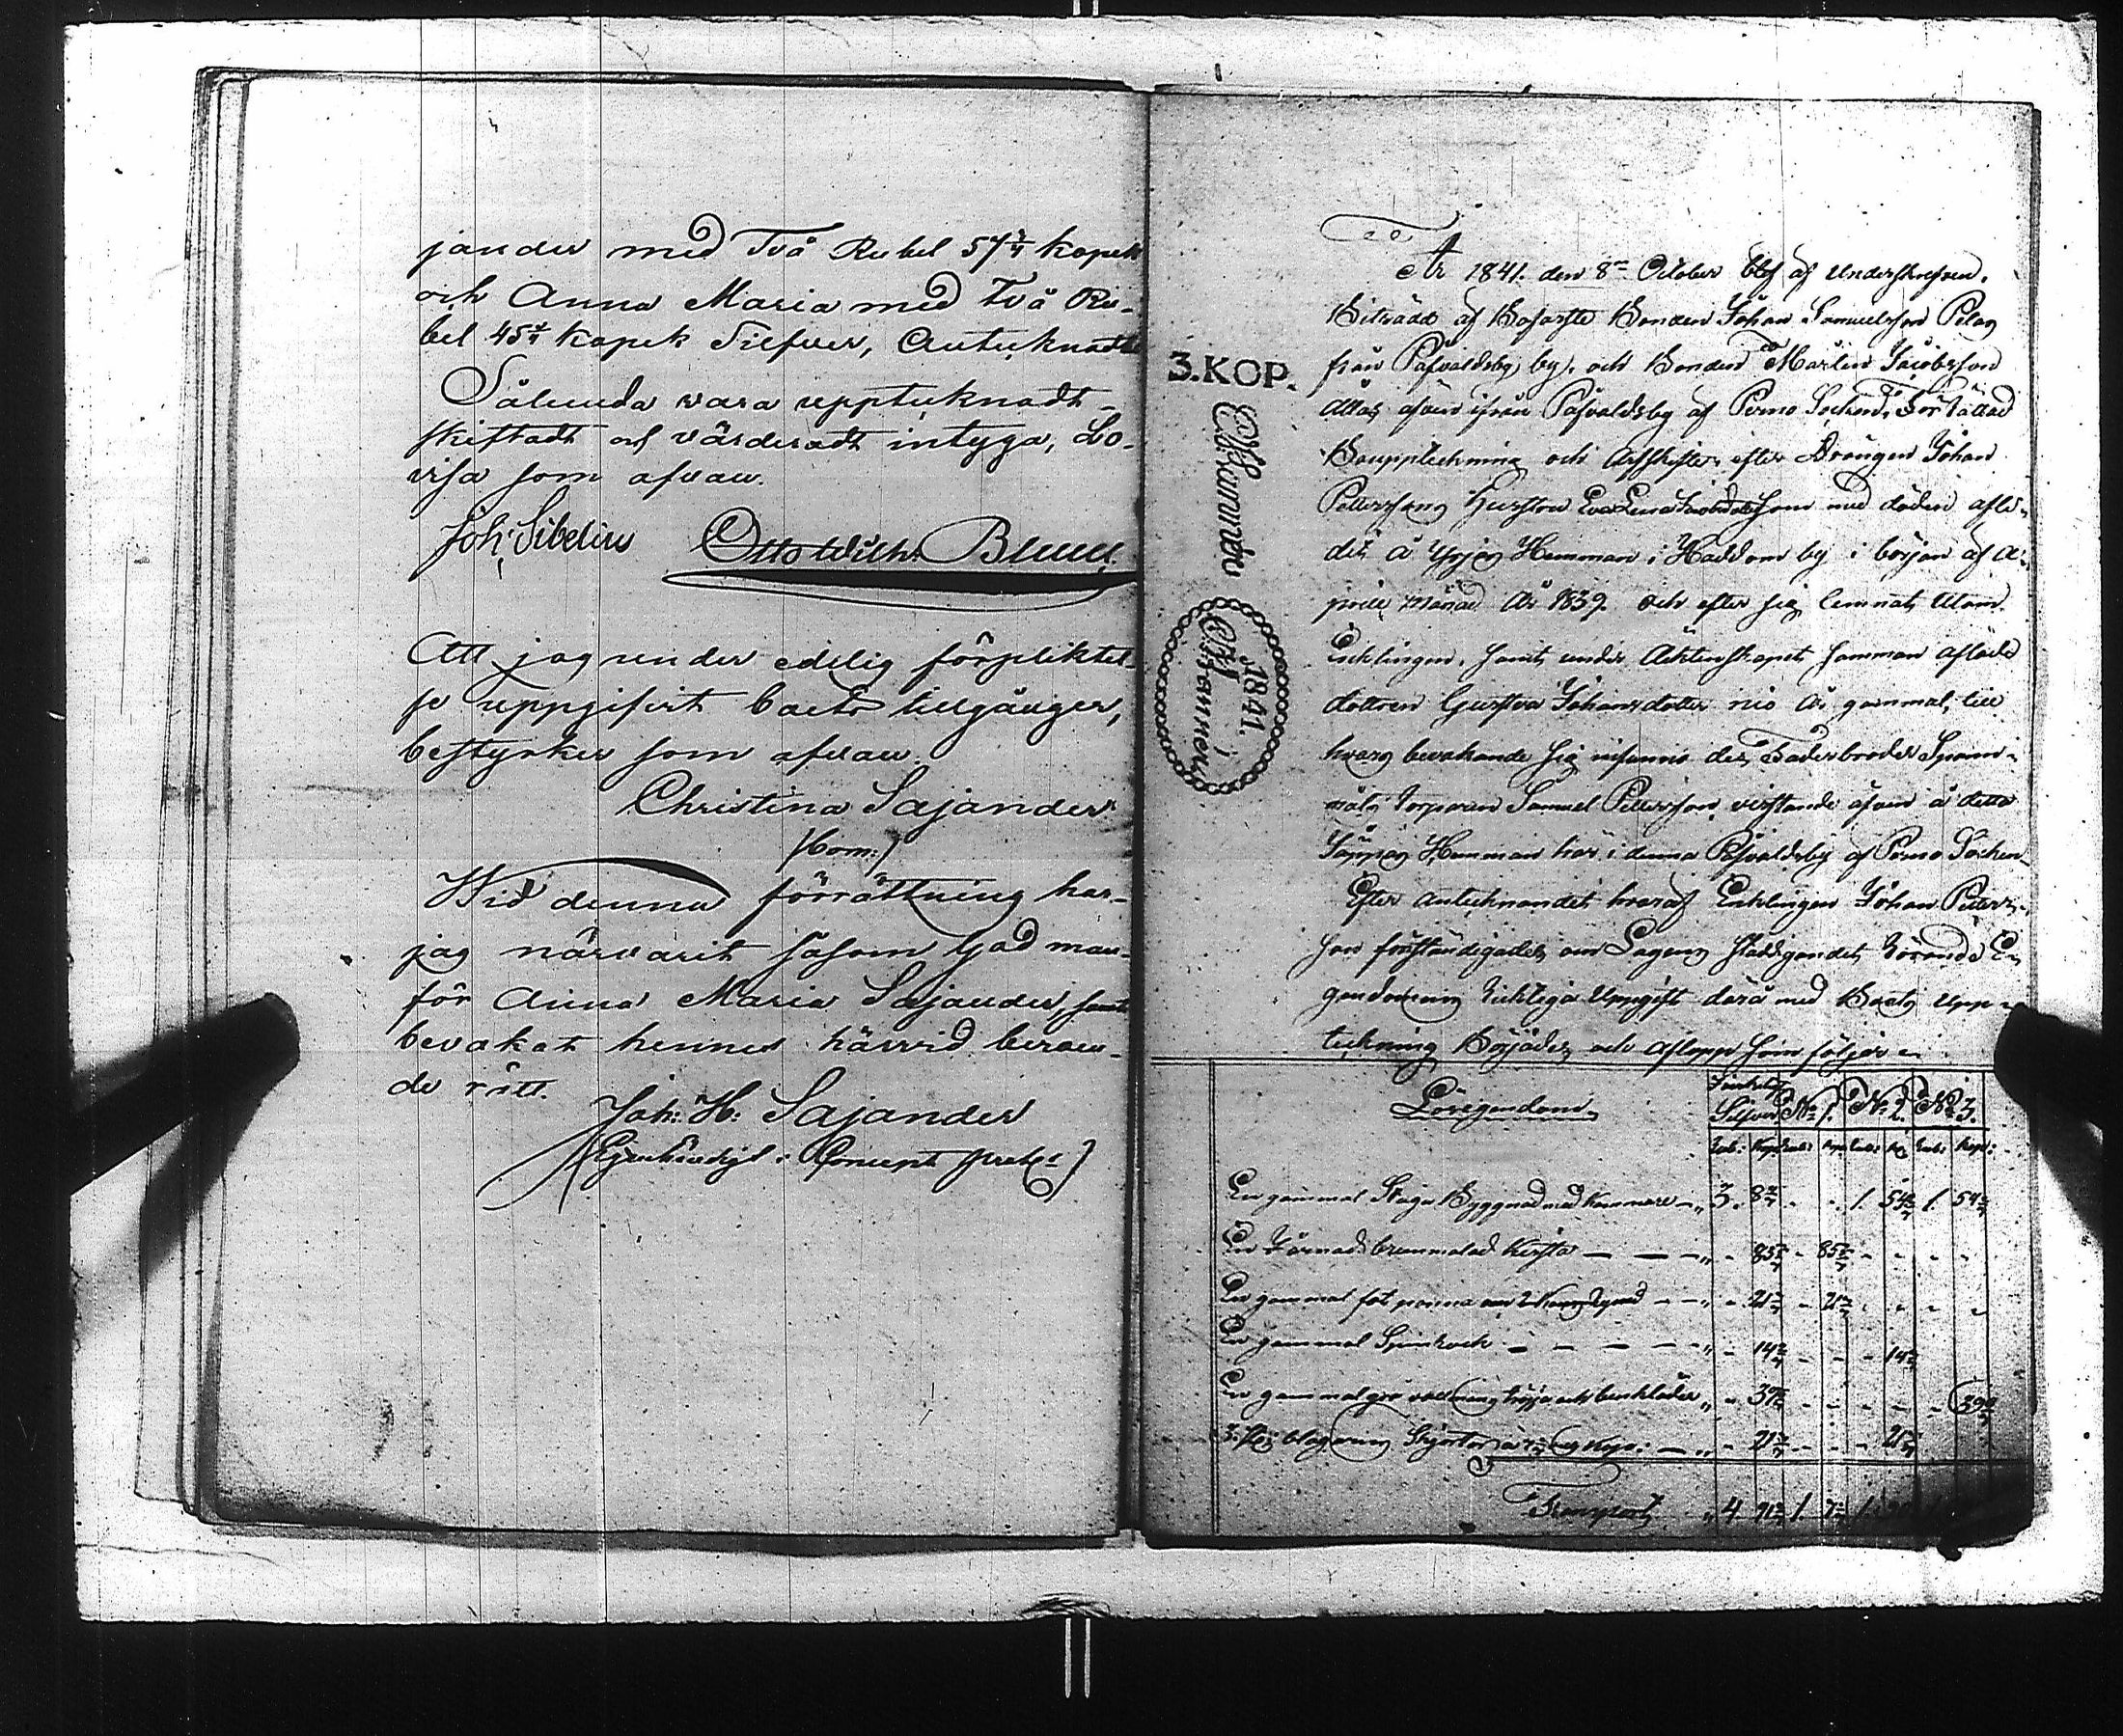 jander med Två Rubel 57 1/7 kopek
och Anna Maria med Två Ru-
bel 45 4/7 kopek Silfver, Antecknadt
Sålunda vara upptecknadt
skiftadt och värderadt intyga, Lo-
visa som ofvan.
Joh: Sibelius Otto Wilh:
Att jag under edelig förpliktel-
se uppgifvit boets tillgångar,
bestyrker som ofvan.
Christina Sajander
Wid denna förrättning har
jag närvarit såsom God man
för Anna Maria Sajander, samt
bevakat hennes härvid beroen-
de rätt.
Joh: H: Sajander
3.KOP.
Ett Charta
1841.
År 1841. den 8de October blef af Underskrefven.
Biträdd af Bofaste Bonden Johan Samuelsson
från Påfvaldsby by, och Bonden Martin Jacobsson
äfven ifrån Påfvaldsby af Perno Socken, Förrättad
Bouppteckning och Arfskifte, efter Drängen Johan
Petterssons Hustru Eva Lena som med döden afle-
dit å Hemman i Haddom by i början af A-
prill månad År 1839. och efter sig lemnat, Utom
Encklingen, samt under Äktenskapet samman aflade
dottren Gustva Johansdotter nio år gammal, till
hvars bevakande sig infunnit des Faderbroder
Torparen Samuel Pettersson, vistande äfven å detta
Hemman här i denna Påfvaldsby af Perno Socken
Efter antecknandet hvaraf Encklingen Johan Petters-
son förständigades om Lagens stadgande, Rörande E-
gendomens Ricktiga Uppgift därå med Boets Upp-
teckning Börjades, och aflopp som följer
Lösegendom
Silfver No 1. No 2. No 3.
En gammal Stuga Byggnad med Kammare 3. 8 4/7 1. 54 2/7 1. 54 2/7
En Kista 85 5/7 85 5/7
En gammal fot panna 21 3/7 21 3/7
En gammal Spinrock 14 2/7 14 2/7
En gammal grå tröja och benkläder
3: Skjortor 21 3/7 21 3/7
Transport 4 1